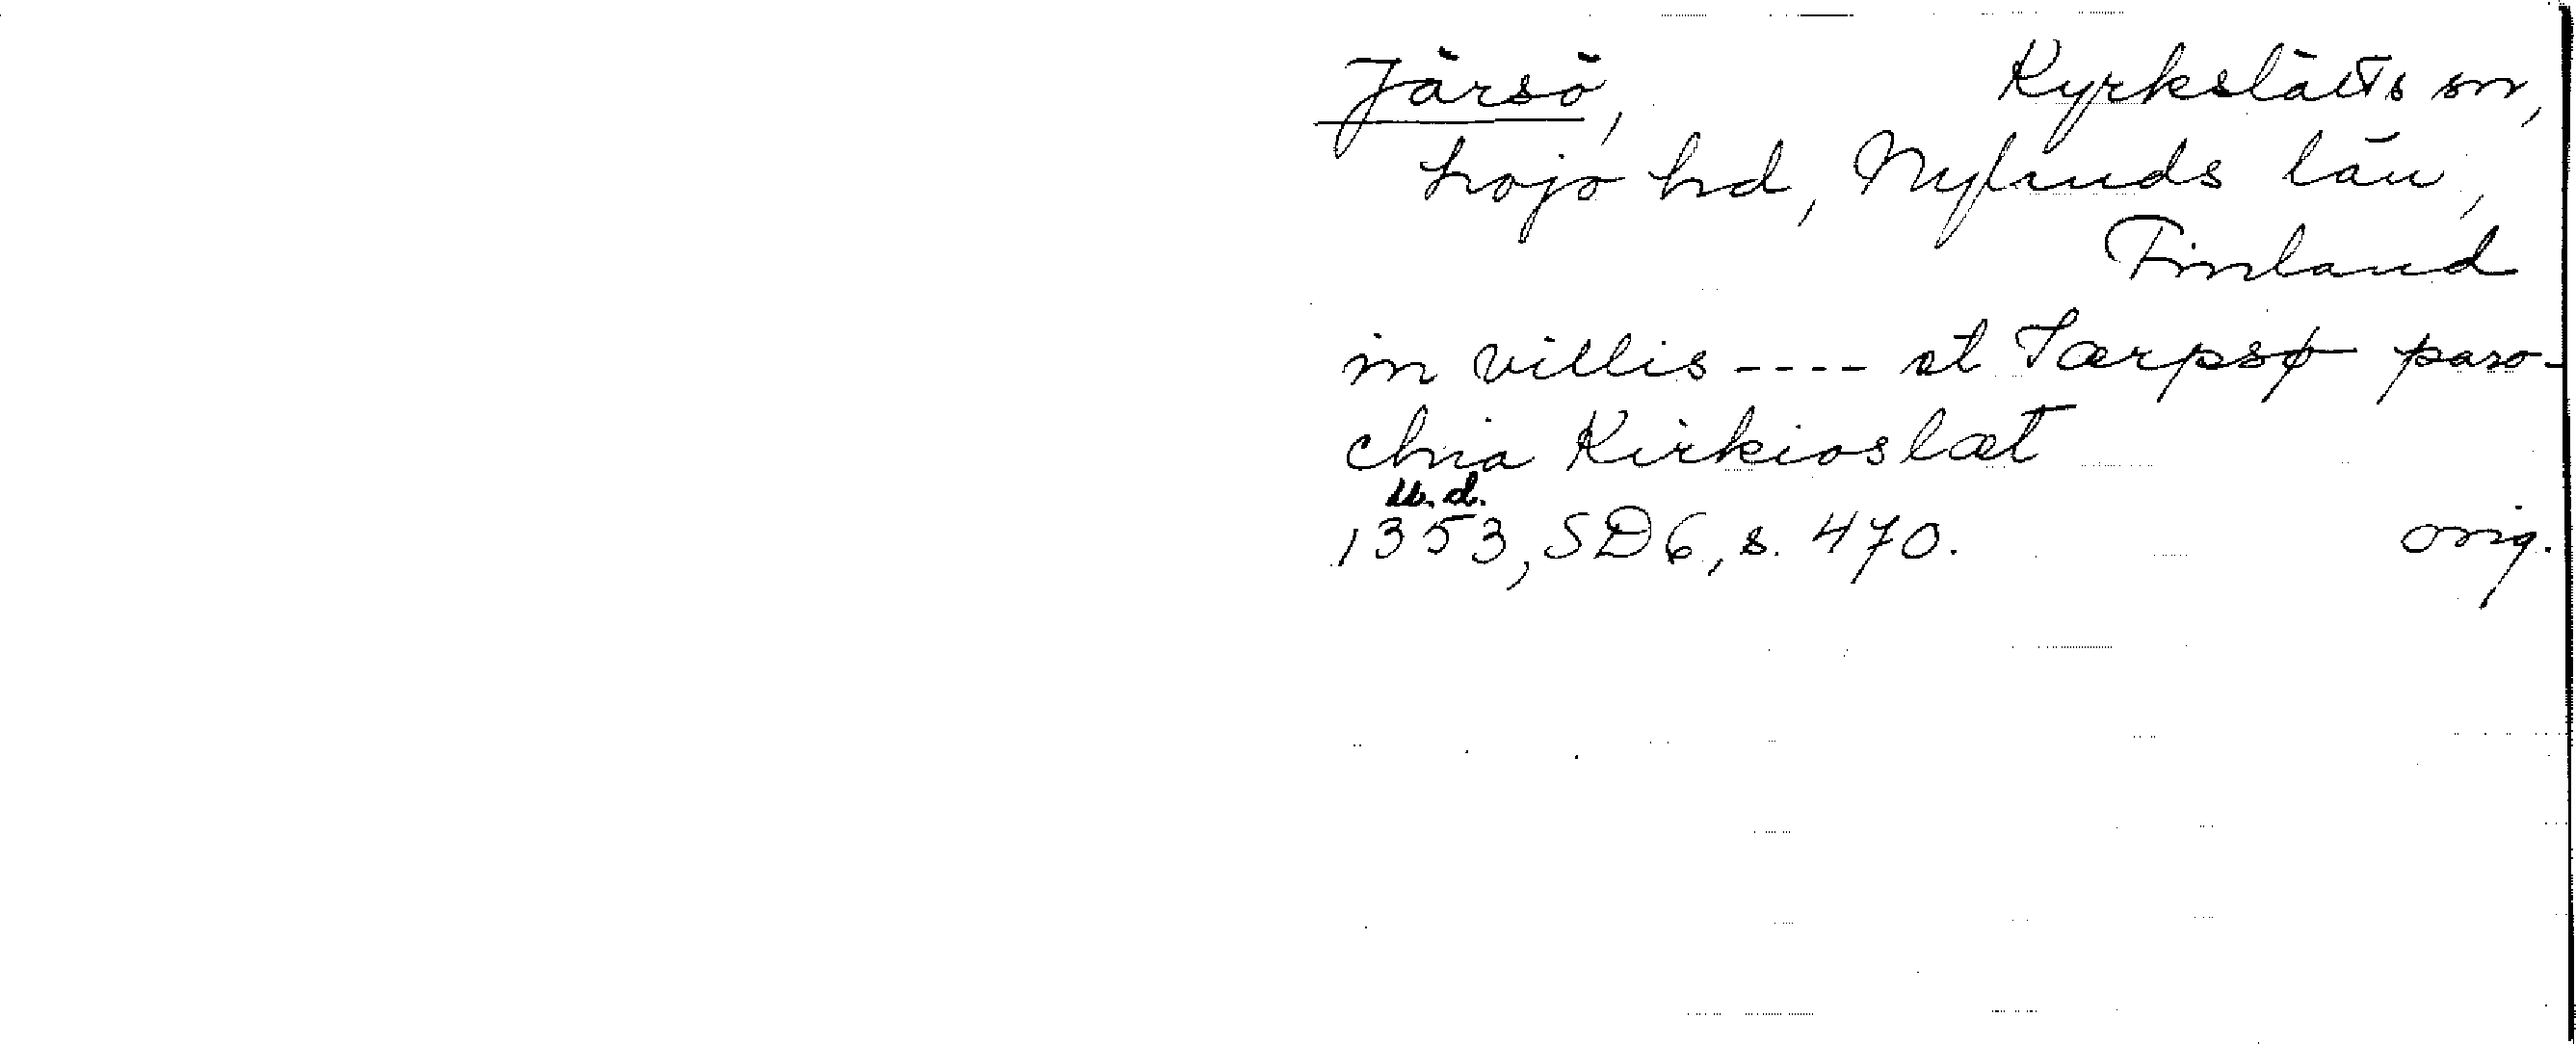 Järsö, Kyrkslätts sn,
Lojo hd, Nylands län,
Finland
in villis ---- et Iærpsø paro-
chia Kirkioslæt
u.d.
1353, SD6, s. 470. orig.